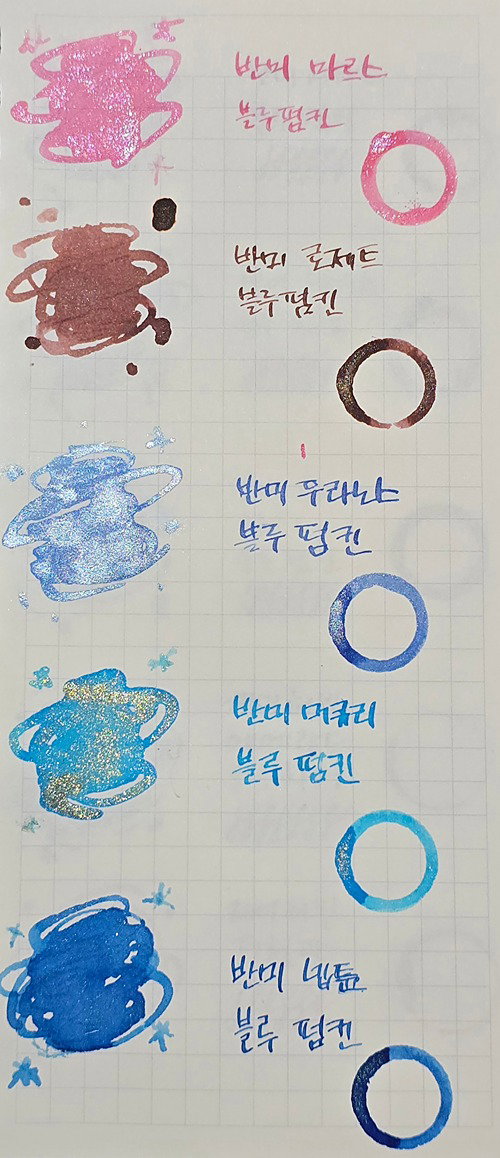 반미 마르스
블루펌킨
반미 로제트
블루펌킨
반미 우라노스
블루 펌킨
반미 머큐리
블루 펌킨
반미 넵튠
블루 펌킨